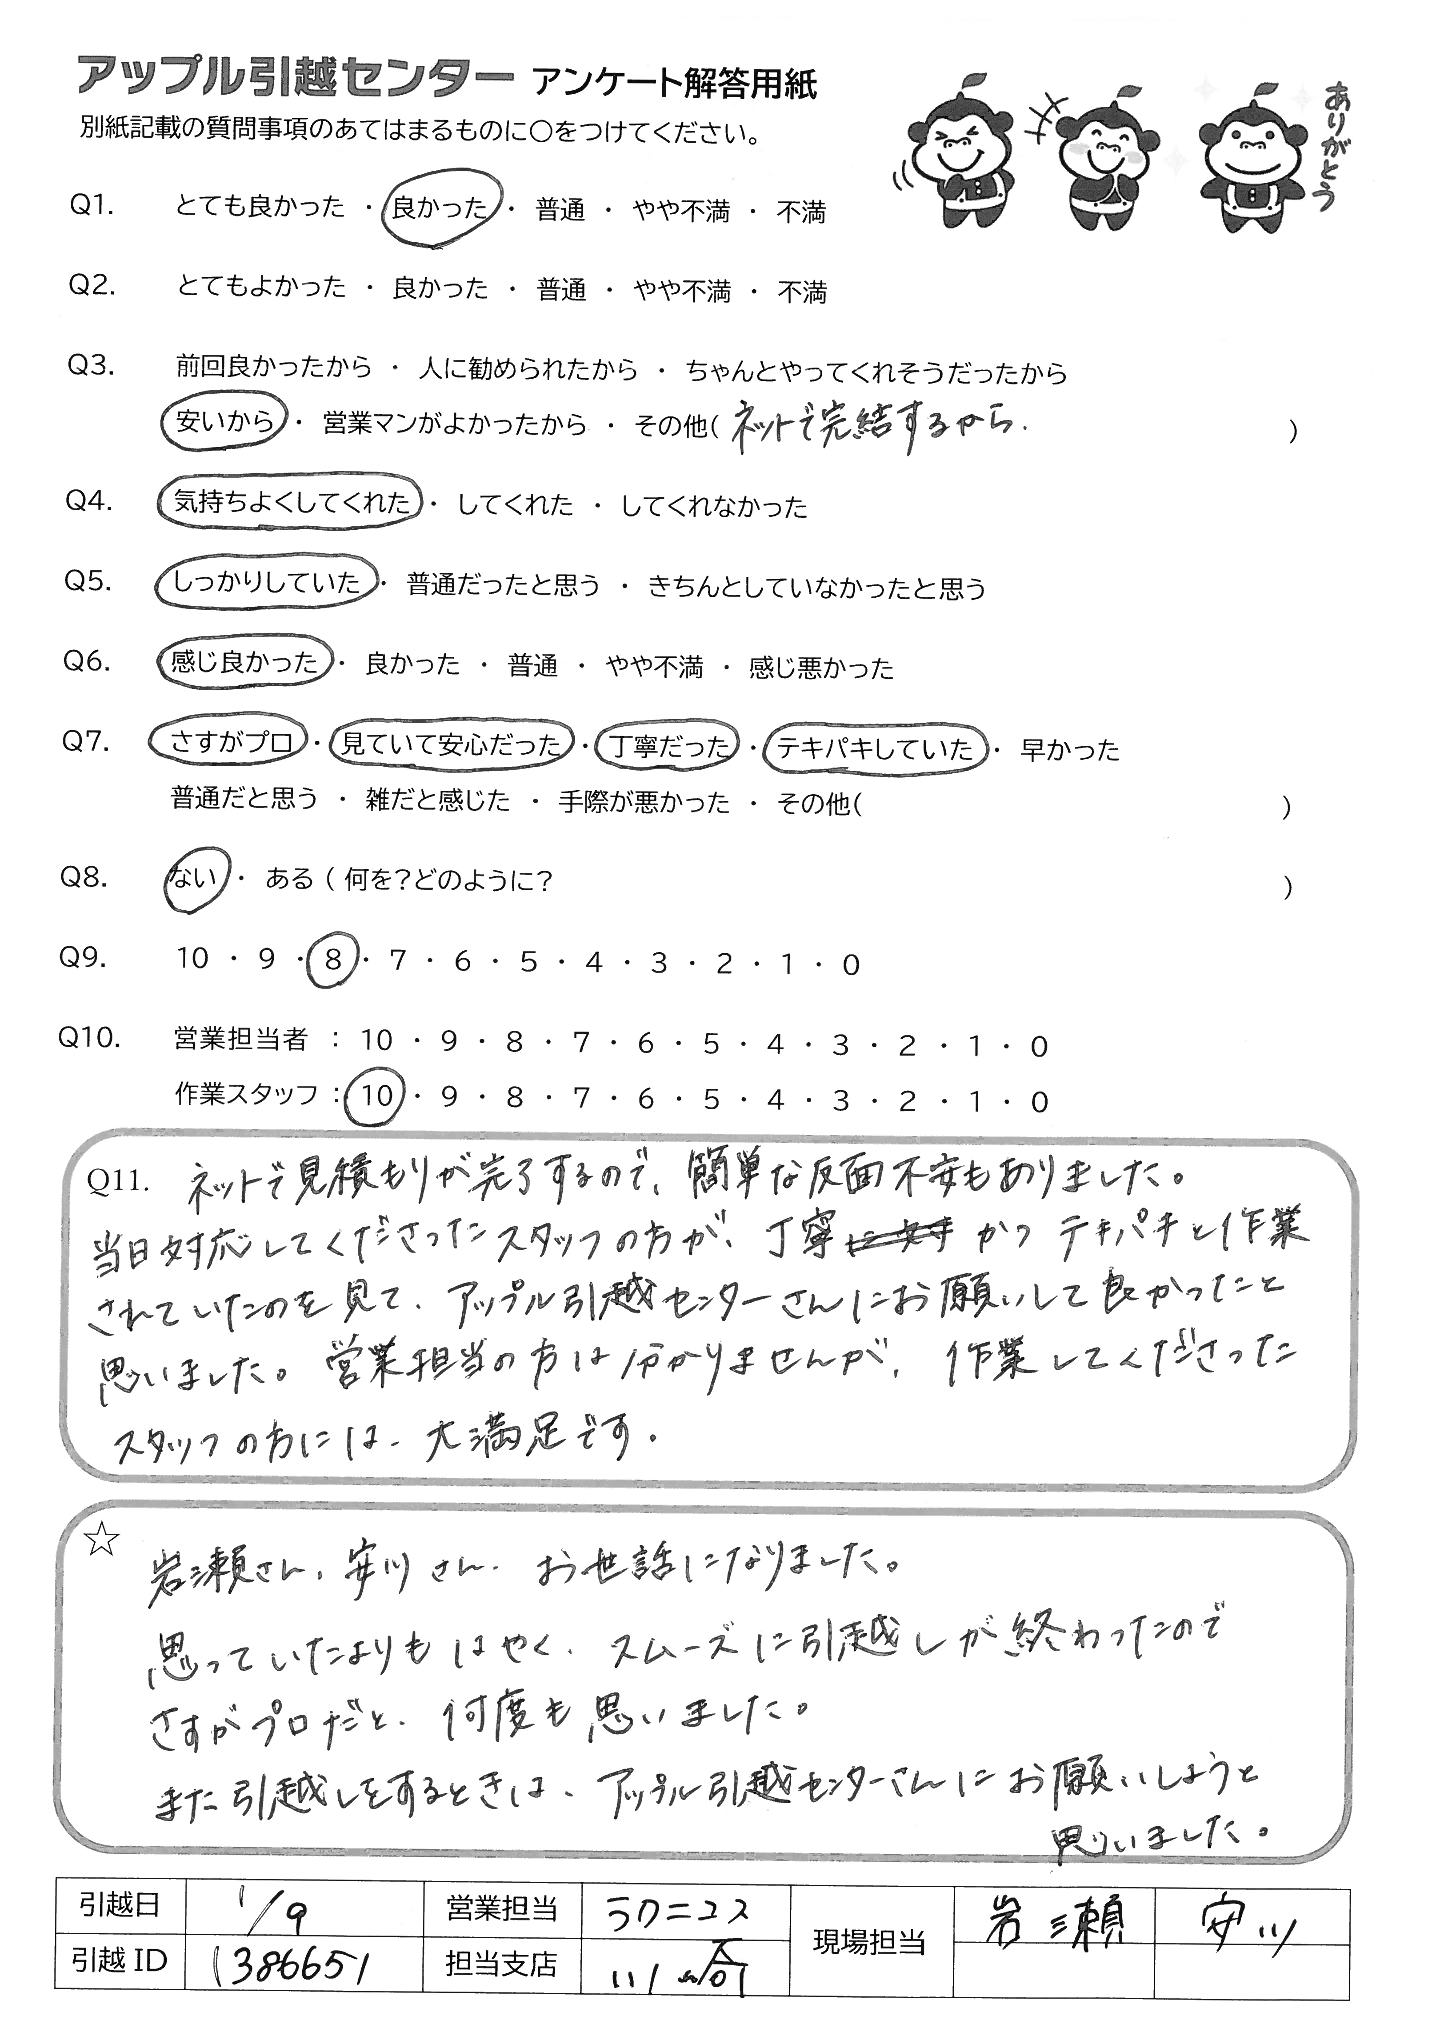 アップル引越センター アンケート解答用紙
別紙記載の質問事項のあてはまるものに○をつけてください。
ありがとう
Q1. とても良かった ・ 良かった ・ 普通 ・ やや不満 ・ 不満
Q2. とてもよかった ・ 良かった ・ 普通 ・ やや不満 ・ 不満
Q3. 前回良かったから ・ 人に勧められたから ・ ちゃんとやってくれそうだったから
安いから ・ 営業マンがよかったから ・ その他( ネットで完結するから. )
Q4. 気持ちよくしてくれた ・ してくれた ・ してくれなかった
Q5. しっかりしていた ・ 普通だったと思う ・ きちんとしていなかったと思う
Q6. 感じ良かった ・ 良かった ・ 普通 ・ やや不満 ・ 感じ悪かった
Q7. さすがプロ ・ 見ていて安心だった ・ 丁寧だった ・ テキパキしていた ・ 早かった
普通だと思う ・ 雑だと感じた ・ 手際が悪かった ・ その他( )
Q8. ない ・ ある ( 何を?どのように? )
Q9. 10 ・ 9 ・ 8 ・ 7 ・ 6 ・ 5 ・ 4 ・ 3 ・ 2 ・ 1 ・ 0
Q10. 営業担当者 : 10 ・ 9 ・ 8 ・ 7 ・ 6 ・ 5 ・ 4 ・ 3 ・ 2 ・ 1 ・ 0
作業スタッフ : 10 ・ 9 ・ 8 ・ 7 ・ 6 ・ 5 ・ 4 ・ 3 ・ 2 ・ 1 ・ 0
Q11. ネットで見積もりが完了するので、簡単な反面不安もありました。
当日対応してくださったスタッフの方が、丁寧 かつ テキパキと作業
されていたのを見て、アップル引越センターさんにお願いして良かったと
思いました。営業担当の方は分かりませんが、作業してくださった
スタッフの方には、大満足です.
☆
岩瀬さん、安川さん、お世話になりました。
思っていたよりもはやく、スムーズに引越しが終わったので
さすがプロだと、何度も思いました。
また引越しをするときは、アップル引越センターさんにお願いしようと
思いました。
引越日 1/9 営業担当 ラクニコス 現場担当 岩瀬 安川
引越ID 1386651 担当支店 川崎